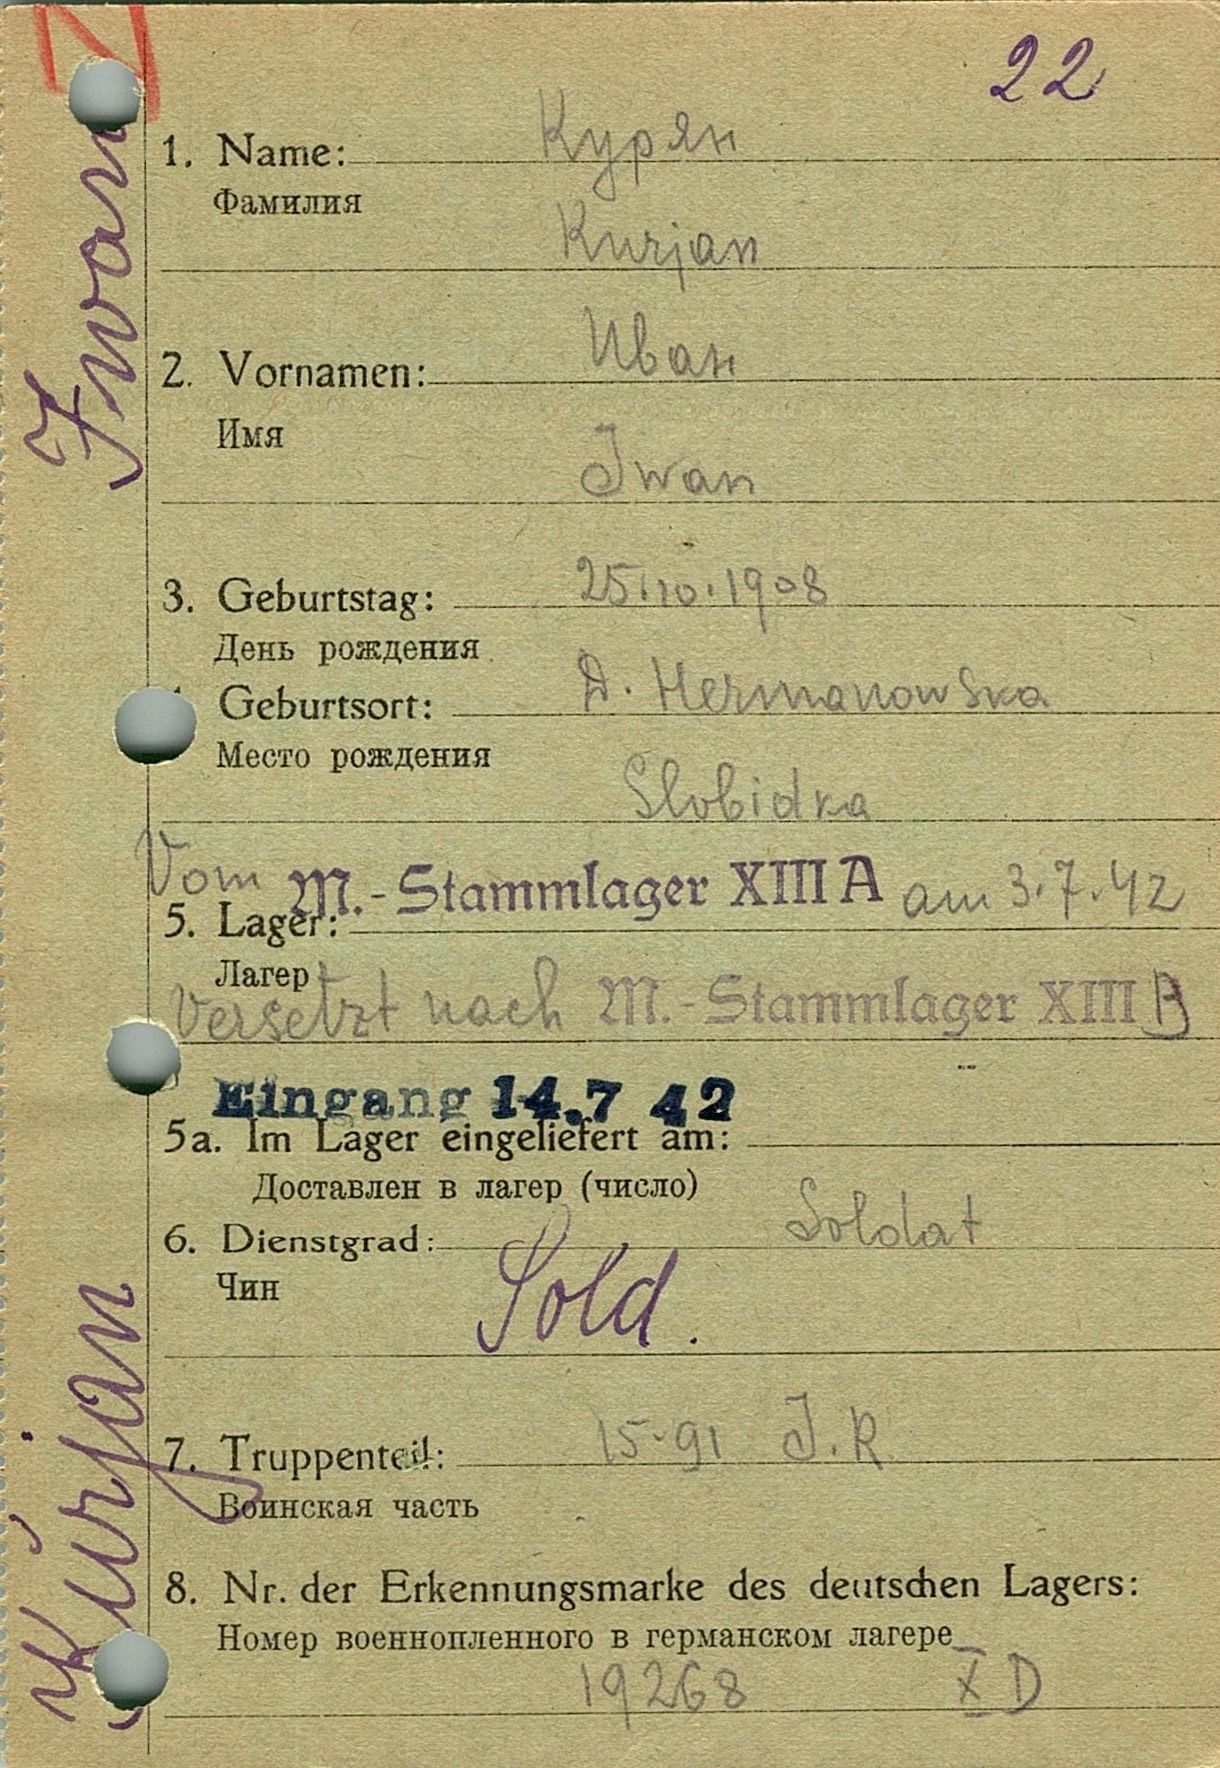 N
22
Kurjan Iwan
1. Name: Курян
Фамилия
Kurjan
2. Vornamen: Иван
Имя
Iwan
3. Geburtstag: 25.10.1908
День рождения
Geburtsort: D. Hermanowska
Место рождения
Slobidka
Vom M.-Stammlager XIII A am 3.7.42
5. Lager:
Лагер
Versetzt nach M.-Stammlager XIII B
Eingang 14.7 42
5a. Im Lager eingeliefert am:
Доставлен в лагер (число)
6. Dienstgrad: Soldat
Чин
Sold.
7. Truppenteil: 15-91 J.R.
Воинская часть
8. Nr. der Erkennungsmarke des deutschen Lagers:
Номер военнопленного в германском лагере
19268 X D